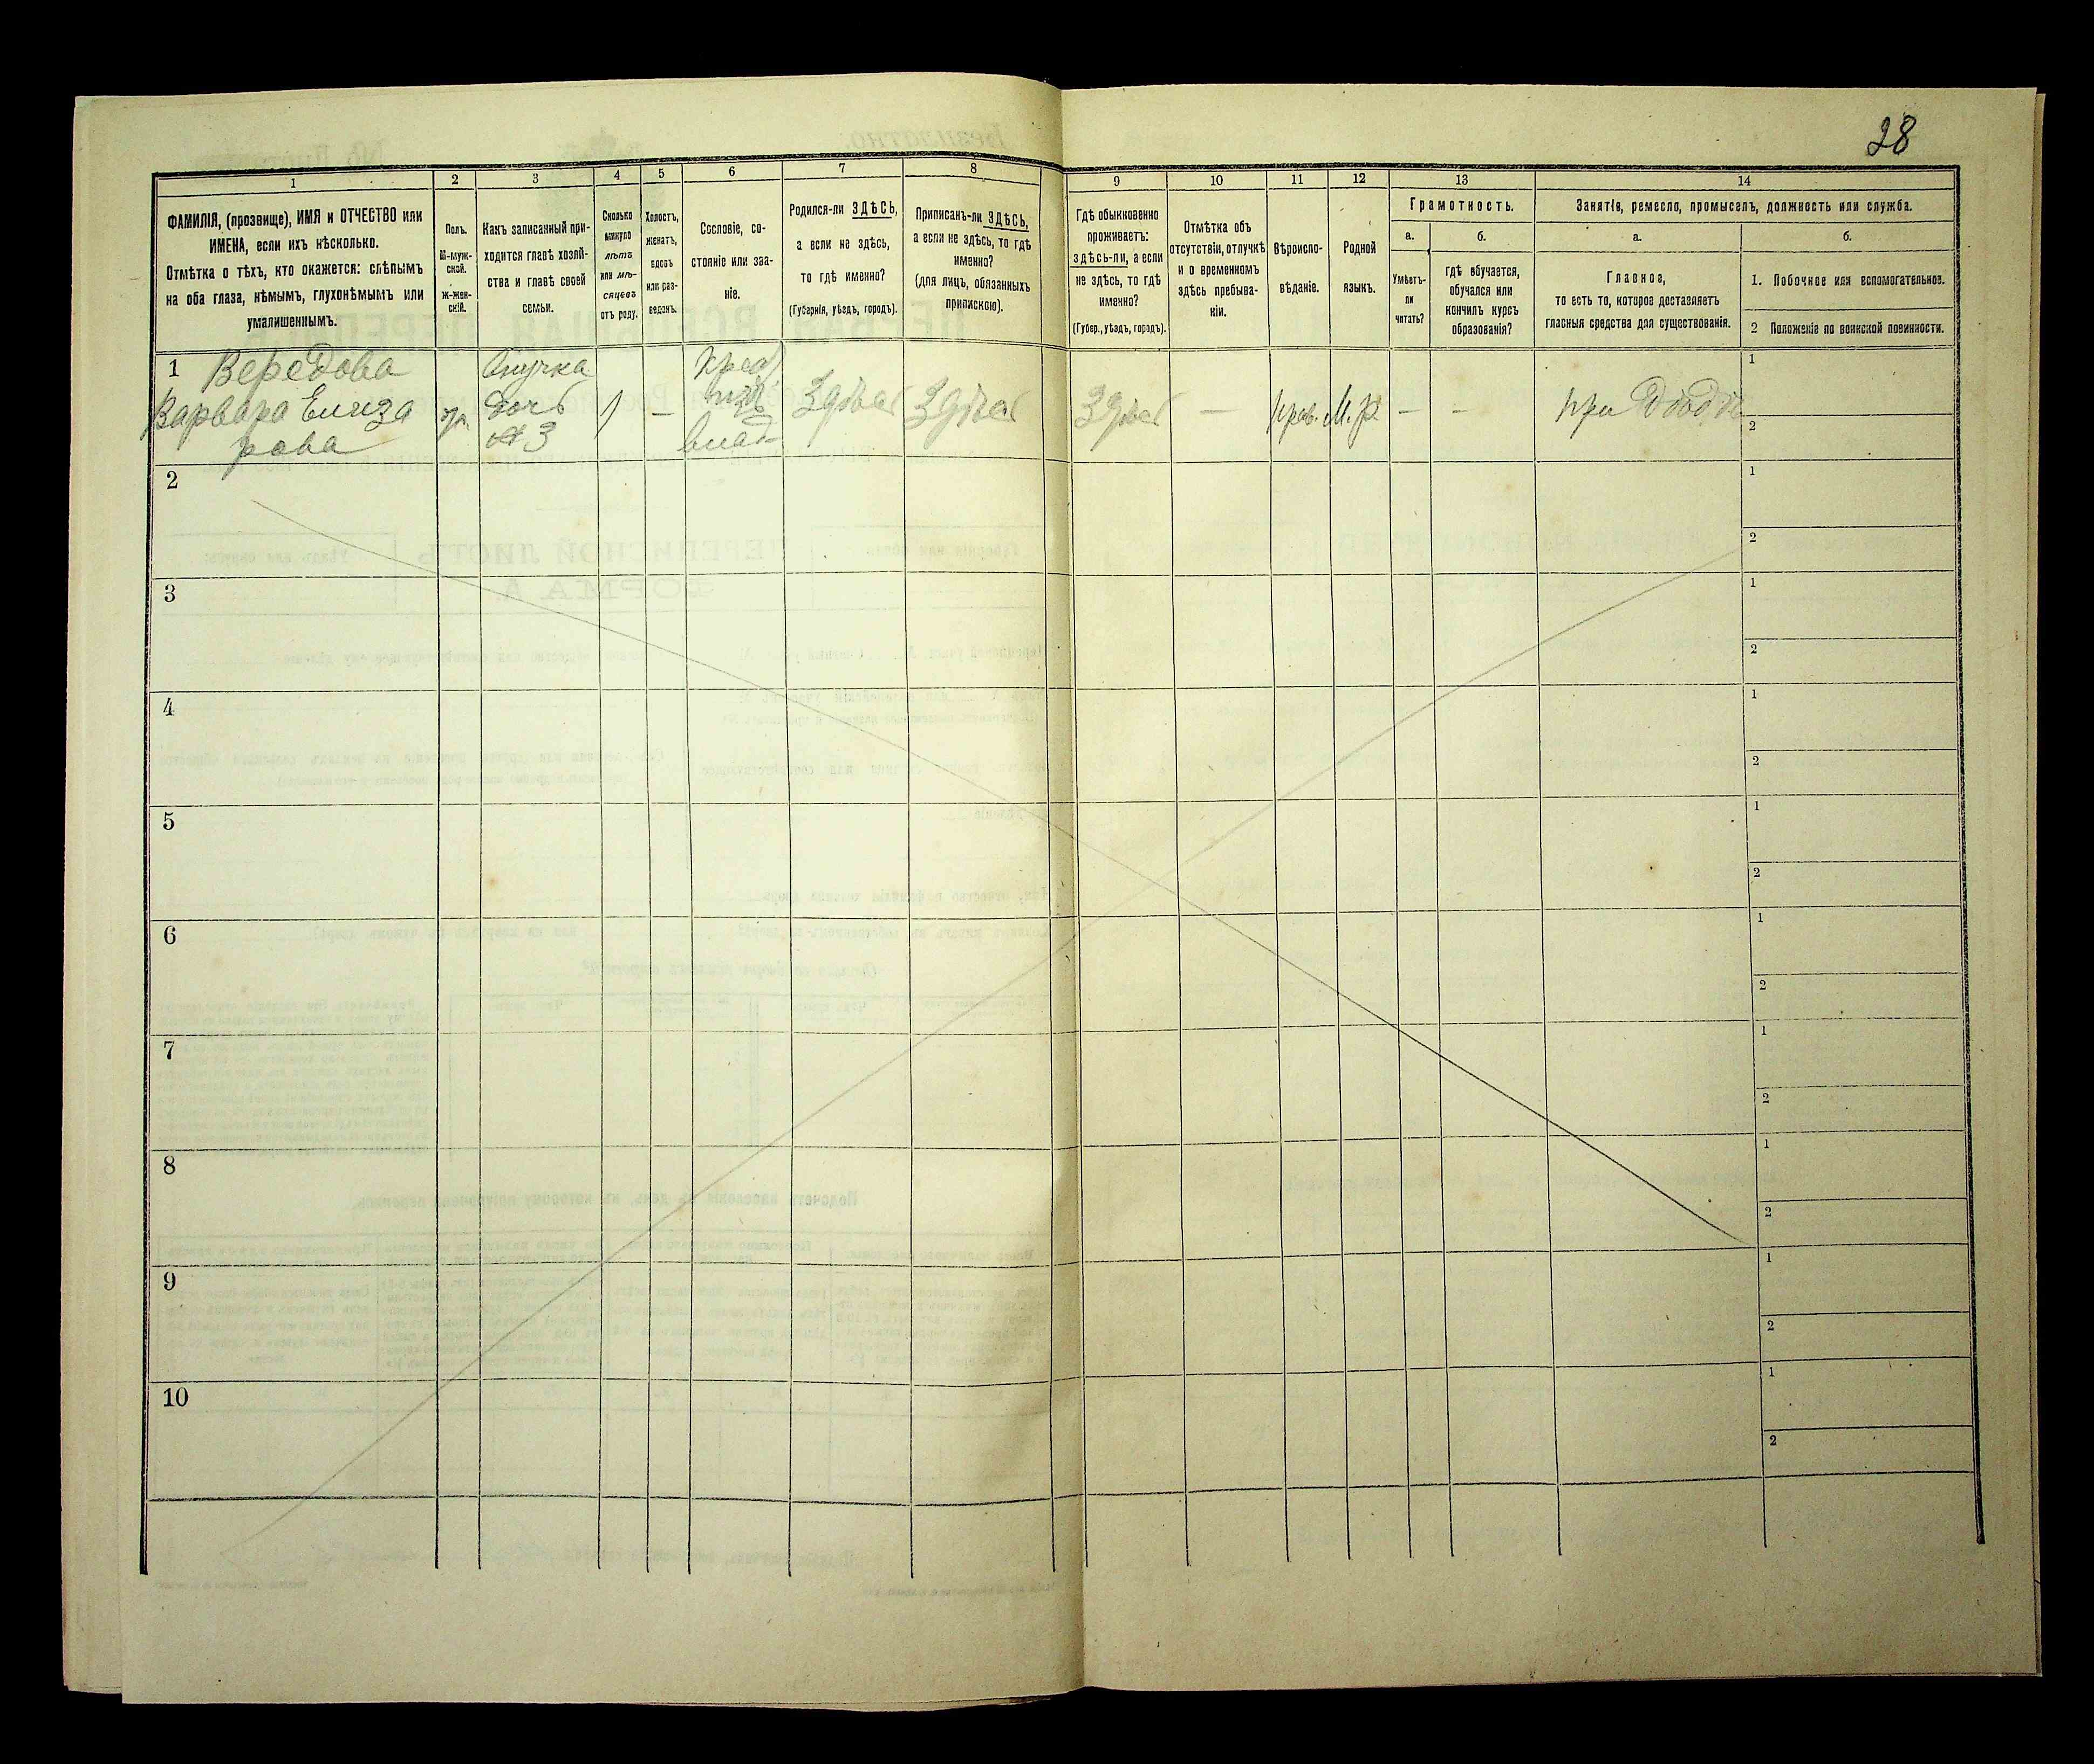 28
1 2 3 4 5 6 7 8 9 10 11 12 13 14
ФАМИЛІЯ, (прозвище), ИМЯ и ОТЧЕСТВО или
ИМЕНА, если ихъ нѣсколько.
Отмѣтка о тѣхъ, кто окажется: слѣпымъ
на оба глаза, нѣмымъ, глухонѣмымъ или
умалишеннымъ.
Полъ.
М-муж-
ской.
Ж-жен-
скій.
Какъ записанный при-
ходится главѣ хозяй-
ства и главѣ своей
семьи.
Сколько
минуло
лѣтъ
или мѣ-
сяцевъ
отъ роду.
Холостъ,
женатъ,
вдовъ
или раз-
веденъ.
Сословіе, со-
стояніе или зва-
ніе.
Родился-ли ЗДѢСЬ,
а если не здѣсь,
то гдѣ именно?
(Губернія, уѣздъ, городъ).
Приписанъ-ли ЗДѢСЬ,
а если не здѣсь, то гдѣ
именно?
(для лицъ, обязанныхъ
припискою).
Гдѣ обыкновенно
проживаетъ:
здѣсь-ли, а если
не здѣсь, то гдѣ
именно?
(Губер., уѣздъ, городъ).
Отмѣтка объ
отсутствіи, отлучкѣ
и о временномъ
здѣсь пребыва-
ніи.
Вѣроиспо-
вѣданіе.
Родной
языкъ.
Грамотность.
а.
Умѣетъ-
ли
читать?
б.
гдѣ обучается,
обучался или
кончилъ курсъ
образованія?
Занятія, ремесло, промыселъ, должность или служба.
а.
Главное,
то есть то, которое доставляетъ
главныя средства для существованія.
б.
1. Побочное или вспомогательное.
2 Положеніе по воинской повинности.
1 Вередова
Варвара
рова
Внучка
дочь
№ 3
1
—
влад
Здѣсь
Здѣсь
Здѣсь
—
прав.
М.р.
—
—
при
1
2
2
1
2
3
1
2
4
1
2
5
1
2
6
1
2
7
1
2
8
1
2
9
1
2
10
1
2